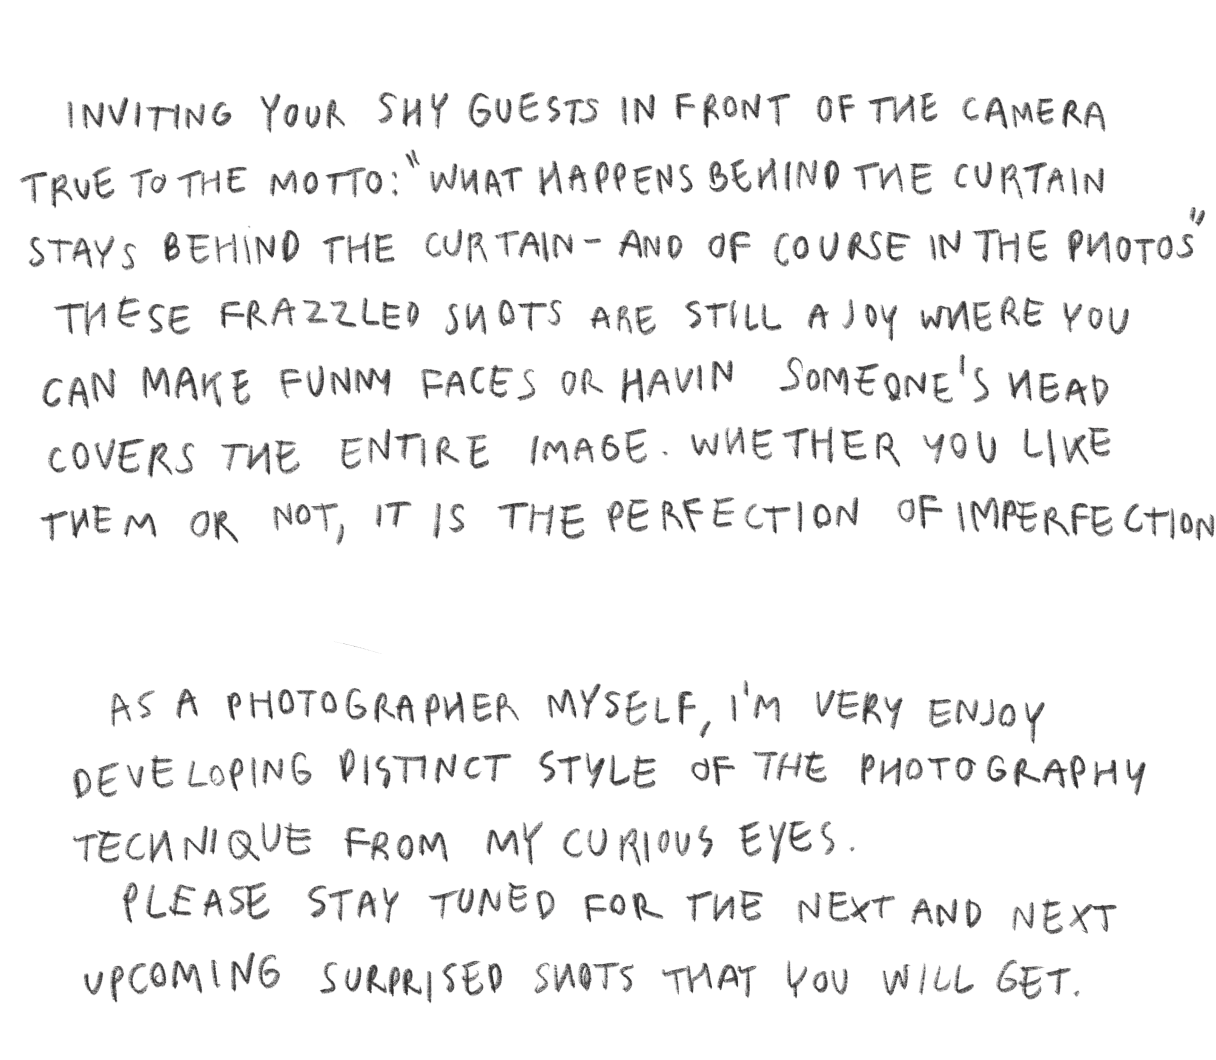 INVITING YOUR SHY GUESTS IN FRONT OF THE CAMERA
TRUE TO THE MOTTO: "WHAT HAPPENS BEHIND THE CURTAIN
STAYS BEHIND THE CURTAIN - AND OF COURSE IN THE PHOTOS"
THESE FRAZZLED SHOTS ARE STILL A JOY WHERE YOU
CAN MAKE FUNNY FACES OR HAVIN SOMEONE'S HEAD
COVERS THE ENTIRE IMAGE. WHETHER YOU LIKE
THEM OR NOT, IT IS THE PERFECTION OF IMPERFECTION
AS A PHOTOGRAPHER MYSELF, I'M VERY ENJOY
DEVELOPING DISTINCT STYLE OF THE PHOTOGRAPHY
TECHNIQUE FROM MY CURIOUS EYES.
PLEASE STAY TUNED FOR THE NEXT AND NEXT
UPCOMING SURPRISED SHOTS THAT YOU WILL GET.